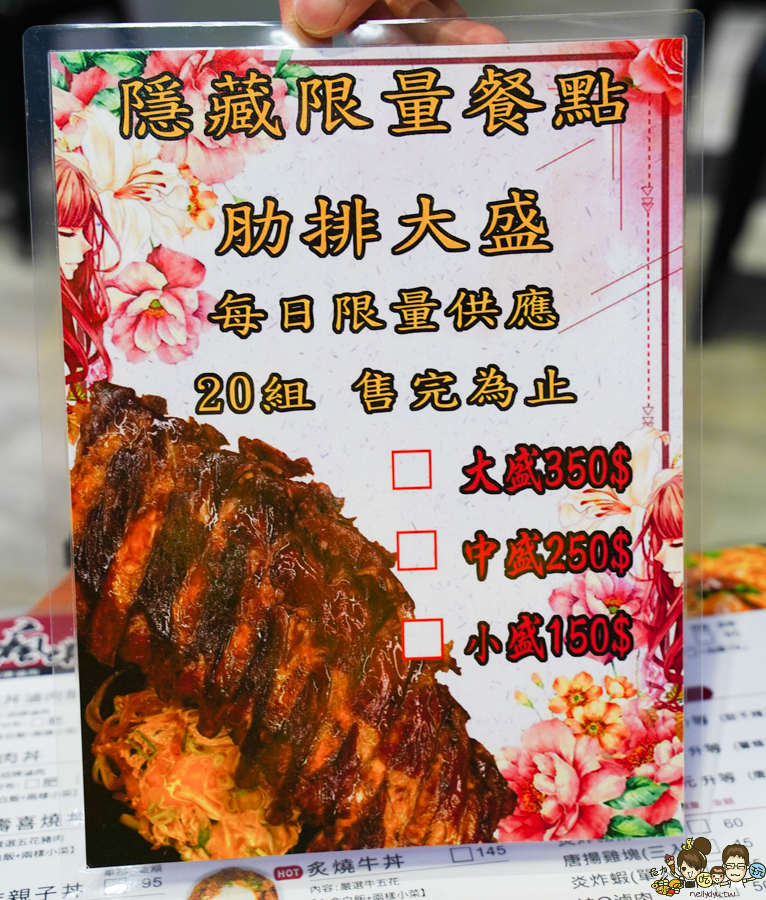 隱藏限量餐點
肋排大盛
每日限量供應
20組 售完為止
大盛350$
中盛250$
小盛150$
肉丼
壽喜燒丼
親子丼
95
HOT 炙燒牛丼 145
內容:嚴選牛五花
60
唐揚雞塊(三入)
炎炸蝦(單
升等
元升等
neilydyu.tw